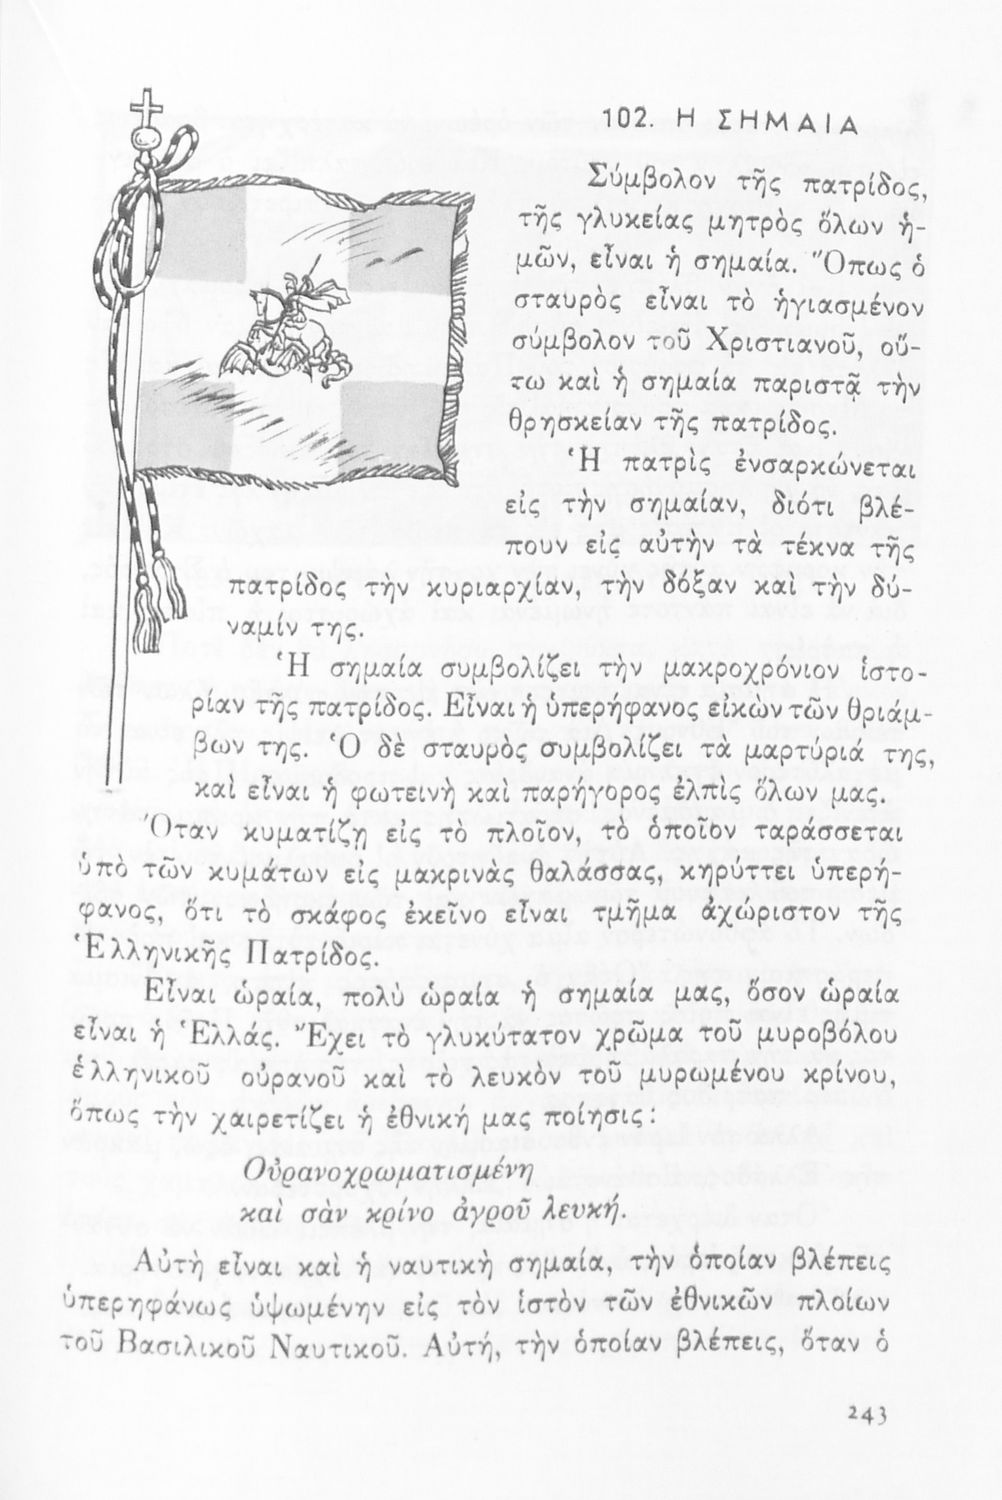 102. Η ΣΗΜΑΙΑ
Σύμβολον τῆς πατρίδος,
τῆς γλυκείας μητρὸς ὅλων ἡ-
μῶν, εἶναι ἡ σημαία. Ὅπως ὁ
σταυρὸς εἶναι τὸ ἡγιασμένον
σύμβολον τοῦ Χριστιανοῦ, οὕ-
τω καὶ ἡ σημαία παριστᾷ τὴν
θρησκείαν τῆς πατρίδος.
Ἡ πατρὶς ἐνσαρκώνεται
εἰς τὴν σημαίαν, διότι βλέ-
πουν εἰς αὐτὴν τὰ τέκνα τῆς
πατρίδος τὴν κυριαρχίαν, τὴν δόξαν καὶ τὴν δύ-
ναμίν της.
Ἡ σημαία συμβολίζει τὴν μακροχρόνιον ἱστο-
ρίαν τῆς πατρίδος. Εἶναι ἡ ὑπερήφανος εἰκὼν τῶν θριάμ-
βων της. Ὁ δὲ σταυρὸς συμβολίζει τὰ μαρτύριά της,
καὶ εἶναι ἡ φωτεινὴ καὶ παρήγορος ἐλπὶς ὅλων μας.
Ὅταν κυματίζῃ εἰς τὸ πλοῖον, τὸ ὁποῖον ταράσσεται
ὑπὸ τῶν κυμάτων εἰς μακρινὰς θαλάσσας, κηρύττει ὑπερή-
φανος, ὅτι τὸ σκάφος ἐκεῖνο εἶναι τμῆμα ἀχώριστον τῆς
Ἑλληνικῆς Πατρίδος.
Εἶναι ὡραία, πολὺ ὡραία ἡ σημαία μας, ὅσον ὡραία
εἶναι ἡ Ἑλλάς. Ἔχει τὸ γλυκύτατον χρῶμα τοῦ μυροβόλου
ἑλληνικοῦ οὐρανοῦ καὶ τὸ λευκὸν τοῦ μυρωμένου κρίνου,
ὅπως τὴν χαιρετίζει ἡ ἐθνική μας ποίησις:
Οὐρανοχρωματισμένη
καὶ σὰν κρίνο ἀγροῦ λευκή.
Αὐτὴ εἶναι καὶ ἡ ναυτικὴ σημαία, τὴν ὁποίαν βλέπεις
ὑπερηφάνως ὑψωμένην εἰς τὸν ἱστὸν τῶν ἐθνικῶν πλοίων
τοῦ Βασιλικοῦ Ναυτικοῦ. Αὐτή, τὴν ὁποίαν βλέπεις, ὅταν ὁ
243